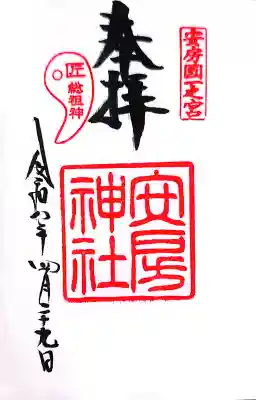 安房國一之宮
奉拝
匠 総祖神
安房神社
令和八年四月二十九日